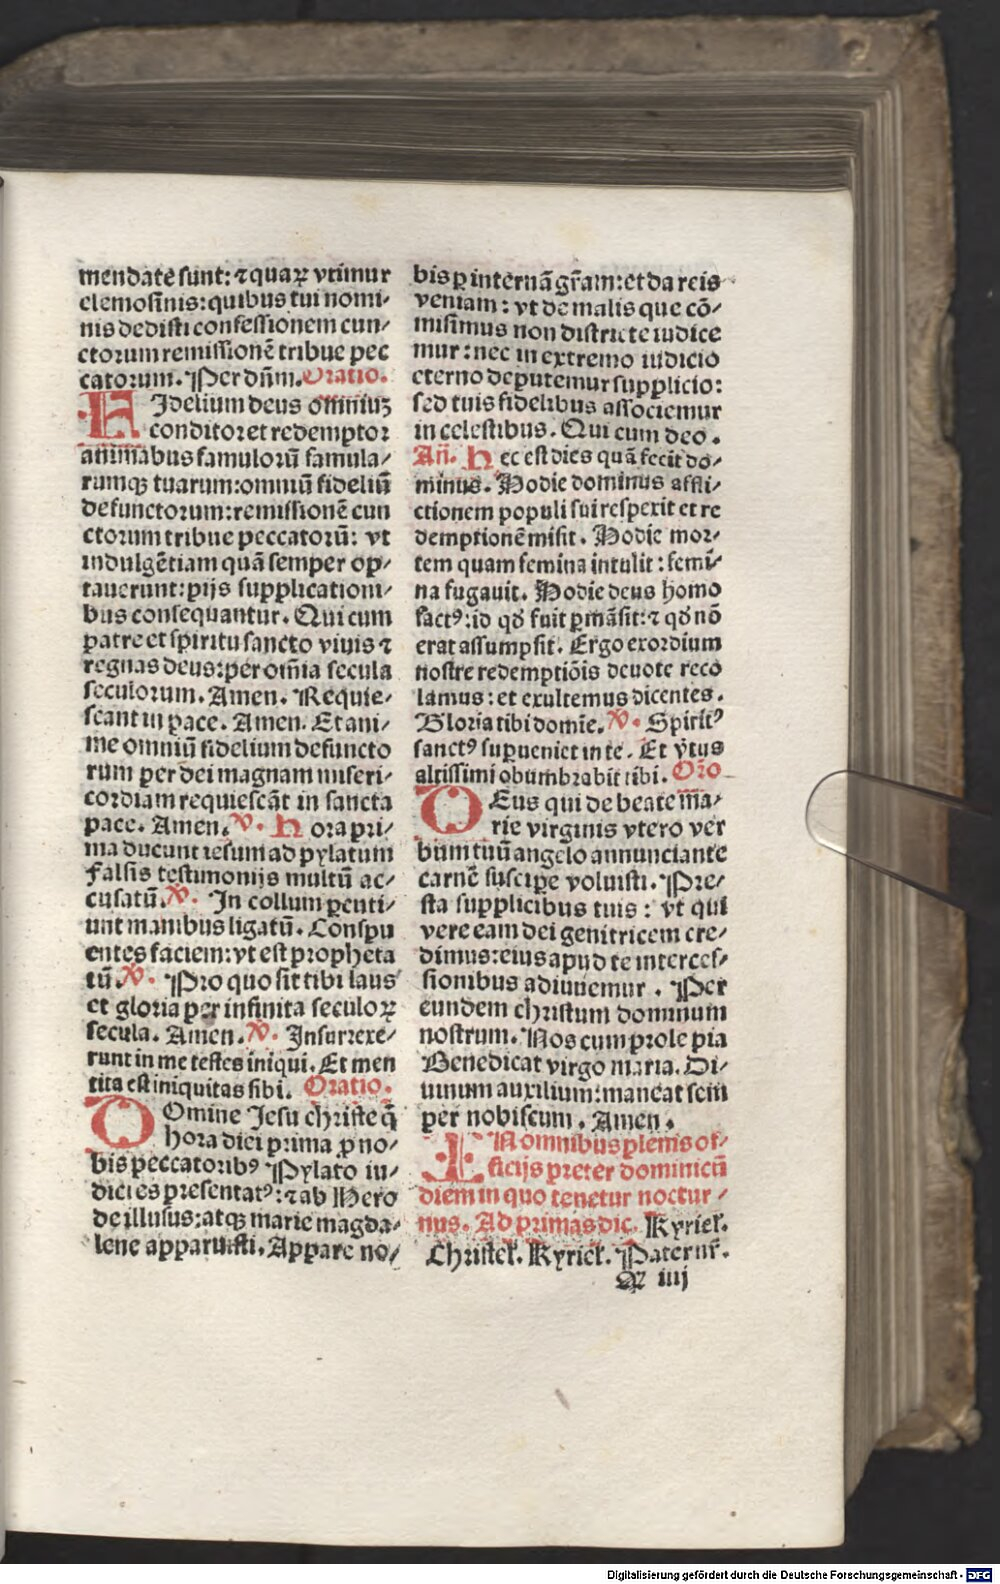 mendate sunt: ⁊ quaꝝ vtimur
elemosinis: quibus tui nomi⸗
nis dedisti confessionem cun⸗
ctorum remissionē tribue pec
catorum. Per dn̄m. Oratio.
FIdelium deus omniuꝫ
conditor et redemptor
animabus famulorū famula⸗
rumqꝫ tuarum: omniū fideliū
defunctorum: remissionē cun
ctorum tribue peccatorū: vt
indulgētiam quā semper op⸗
tauerunt: pijs supplicationi⸗
bus consequantur. Qui cum
patre et spiritu sancto viuis ⁊
regnas deus: per om̄ia secula
seculorum. Amen. Requie⸗
scant in pace. Amen. Et ani⸗
me omniū fidelium defuncto
rum per dei magnam miseri⸗
cordiam requiescāt in sancta
pace. Amen. ℣. Hora pri⸗
ma ducunt iesum ad pylatum
falsis testimonijs multū ac⸗
cusatū. ℣. In collum ꝑcuti⸗
unt manibus ligatū. Conspu
entes faciem: vt est propheta
tū. ℣. Pro quo sit tibi laus
et gloria per infinita seculoꝝ
secula. Amen. ℣. Insurrexe⸗
runt in me testes iniqui. Et men
tita est iniquitas sibi. Oratio.
DOmine Jesu christe q̄
hora diei prima ꝓ no⸗
bis peccatoribꝰ Pylato iu⸗
dici es presentatꝰ: ⁊ ab Hero
de illusus: atqꝫ marie magda⸗
lene apparuisti. Appare no⸗
bis ꝑ internā gr̄am: et da reis
veniam: vt de malis que cō⸗
misimus non districte iudice
mur: nec in extremo iudicio
eterno deputemur supplicio:
sed tuis fidelibus associemur
in celestibus. Qui cum deo.
Añ. Hec est dies quā fecit do⸗
minus. Hodie dominus affli⸗
ctionem populi sui respexit et re
demptionē misit. Hodie mor⸗
tem quam femina intulit: femi⸗
na fugauit. Hodie deus homo
factꝰ: id qd̄ fuit ꝑmāsit: ⁊ qd̄ nō
erat assumpsit. Ergo exordium
nostre redemptiōis deuote reco
lamus: et exultemus dicentes.
Gloria tibi domīe. ℣. Spiritꝰ
sanctꝰ suꝑueniet in te. Et v̓tus
altissimi obumbrabit tibi. Oro
DEus qui de beate ma⸗
rie virginis vtero ver
bum tuū angelo annunciante
carnē suscipe voluisti. Pre⸗
sta supplicibus tuis: vt qui
vere eam dei genitricem cre⸗
dimus: eius apud te interces⸗
sionibus adiuuemur. Per
eundem christum dominum
nostrum. Nos cum prole pia
Benedicat virgo maria. Di⸗
uinum auxilium: maneat sem
per nobiscum. Amen.
IN omnibus plenis of⸗
ficijs preter dominicū
diem in quo tenetur noctur⸗
nus. Ad primas dic. Kyriel̓.
Christel̓. Kyriel̓. Pater nr̄.
Q iiij
Digitalisierung gefördert durch die Deutsche Forschungsgemeinschaft - DFG